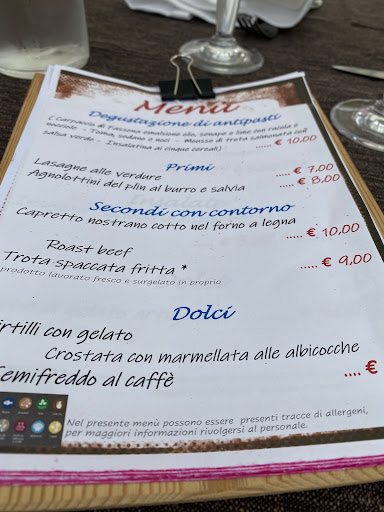 Menù
Degustazione di antipasti
( Carpaccio di Fassona emulsione olio, senape e lime con rucola e
nocciole - Toma, sedano e noci - Mousse di trota salmonata con
salsa verde - Insalatina ai cinque cereali)
..... € 10,00
Primi
Lasagne alle verdure ..... € 7,00
Agnolottini del plin al burro e salvia ..... € 8,00
Secondi con contorno
Capretto nostrano cotto nel forno a legna
..... € 10,00
Roast beef
Trota spaccata fritta * ..... € 9,00
prodotto lavorato fresco e surgelato in proprio
Dolci
irtilli con gelato
Crostata con marmellata alle albicocche
emifreddo al caffè .... €
Nel presente menù possono essere presenti tracce di allergeni,
per maggiori informazioni rivolgersi al personale.